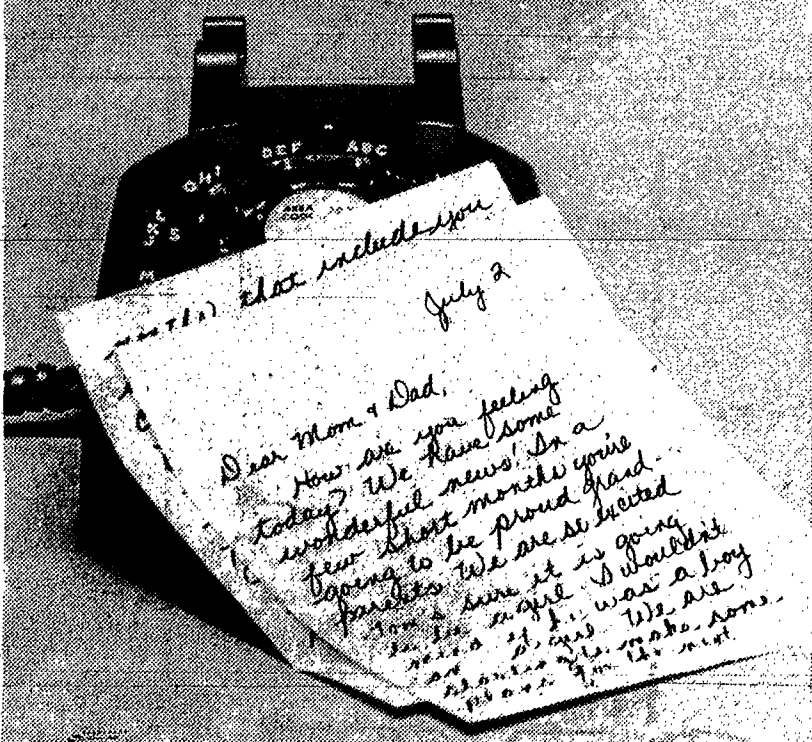 GHI
DEF
ABC
AREA
CODE
that include you
July 2
Dear Mom & Dad,
How are you feeling
today? We have some
wonderful news! In a
few short months you're
going to be proud grand-
parents. We are so excited
Tom's sure it is going
to be a girl. I wouldn't
mind if it was a boy
or a girl. We are
make some
plans for the next